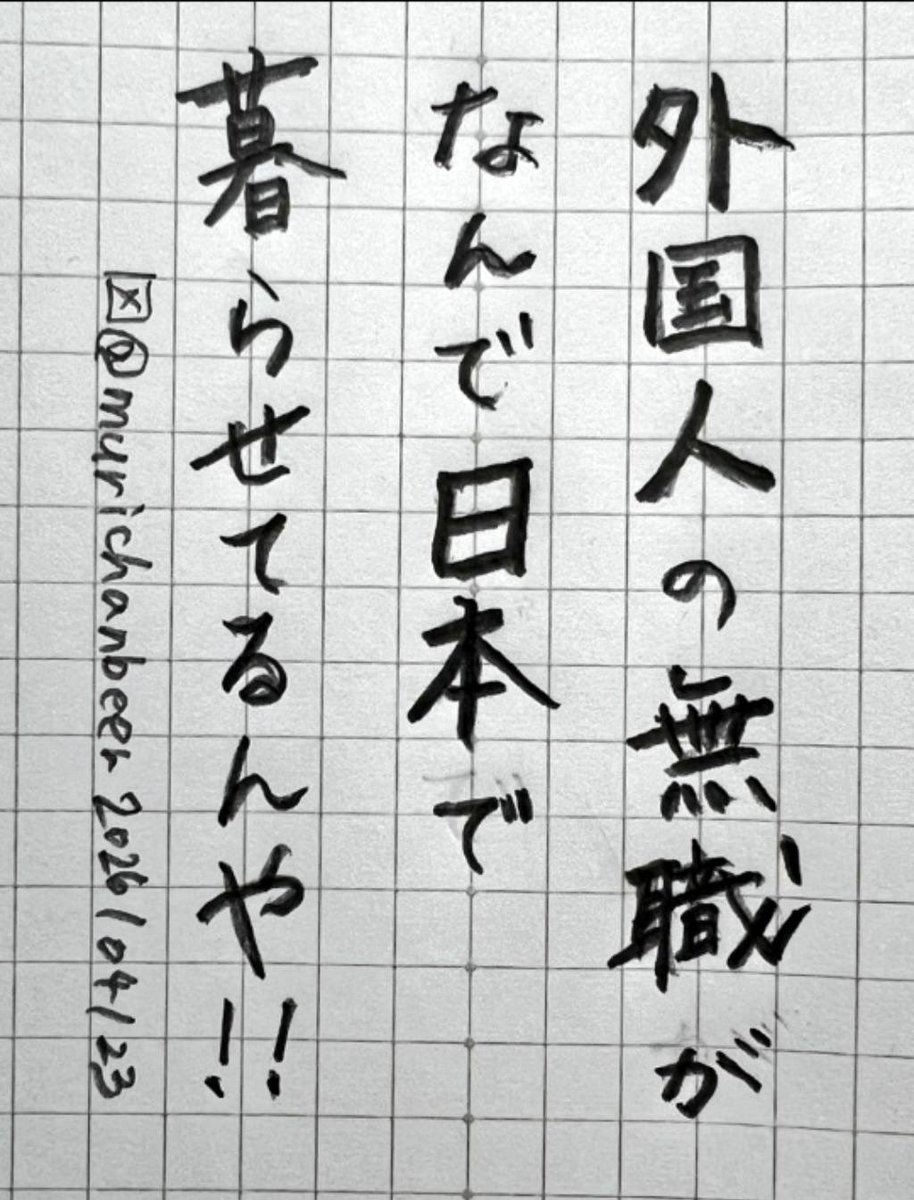 外国人の無職が
なんで日本で
暮らせてるんや!!
X@murichanbeer 2026/04/23